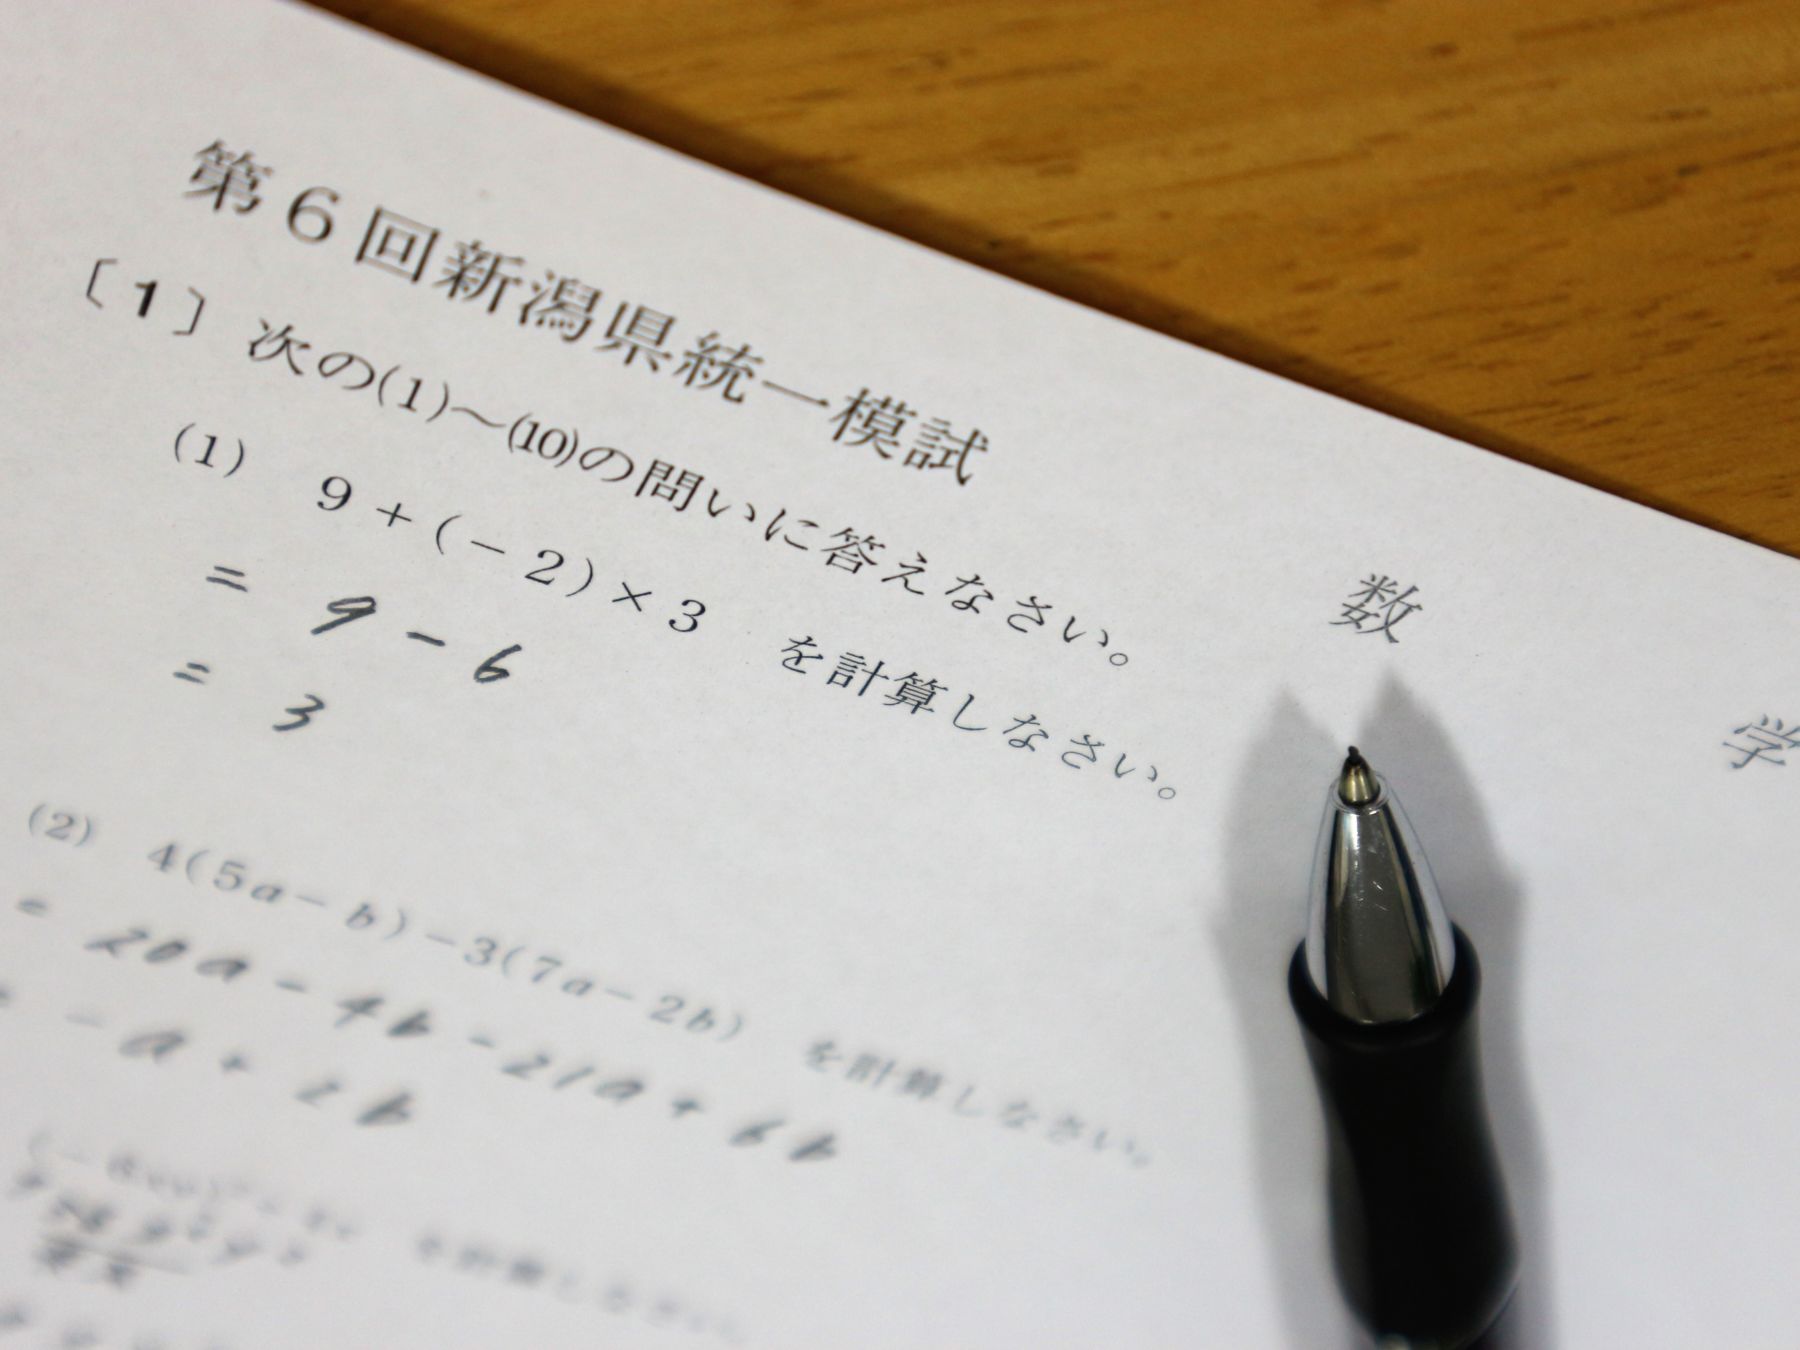 第6回新潟県統一模試
数 学
〔1〕 次の(1)～(10)の問いに答えなさい。
(1) 9+(-2)×3 を計算しなさい。
= 9 - 6
= 3
(2) 4(5a-b)-3(7a-2b) を計算しなさい。
= 20a - 4b - 21a + 6b
= -a + 2b
を計算しなさい。